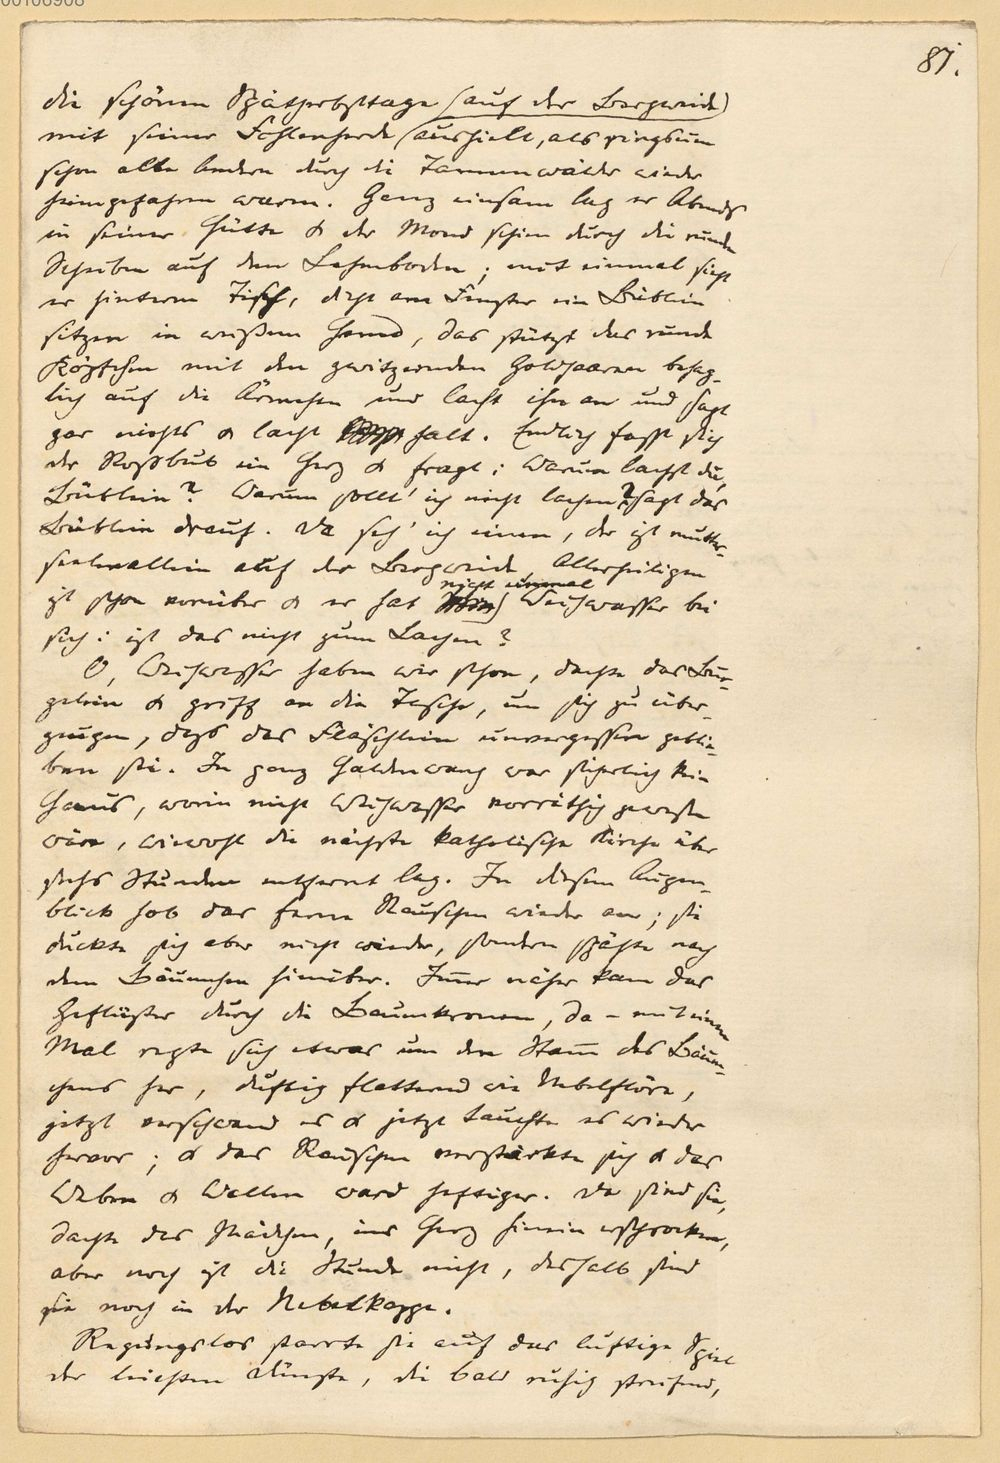 00106908
87.
die schönen Spätherbsttage (auf der Bergweide)
mit seiner Fohlenherde (aushielt, als ringsum
schon alle andern durch die Tannenwälder wieder
heimgefahren waren. Ganz einsam lag er Abends
in seiner Hütte & der Mond schien durch die runden
Scheiben auf den Lehmboden; mit einmal sieht
er hinterm Tisch, dicht am Fenster ein Büblein
sitzen in weißem Hemd, das stützt das runde
Köpfchen mit den gwitzernden Goldhaaren behag-
lich auf die Ärmchen und lacht ihn an und sagt
gar nichts & lacht halt. Endlich fasst sich
der Roßbub ein Herz & fragt: Warum lachst du,
Büblein? Warum sollt' ich nicht lachen? sagt das
Büblein drauf. Da seh' ich einen, der ist mutter-
seelenallein auf der Bergweide, Allerheiligen
ist schon vorüber & er hat nicht einmal Weihwasser bei
sich: ist das nicht zum Lachen?
O, Weihwasser haben wir schon, dachte das
gelein & griff an die Tasche, um sich zu über-
zeugen, dass das Fläschlein unvergessen geblie-
ben sei. In ganz Haldenwang war sicherlich kein
Haus, worin nicht Weihwasser vorräthig gewesen
wäre, wiewohl die nächste katholische Kirche über
sechs Stunden entfernt lag. In diesem Augen-
blick hob das ferne Rauschen wieder an; sie
duckte sich aber nicht wieder, sondern spähte nach
dem Bäumchen hinüber. Im̄er näher kam das
Geflüster durch die Baumkronen, da - mit einem
Mal regte sich etwas um den Stam̄ des Bäum-
chens her, duftig flatternd wie Nebelflöre,
jetzt verschwand es & jetzt tauchte es wieder
hervor; & das Rauschen verstärkte sich & das
Weben & Wallen ward heftiger. Da sind sie,
dachte das Mädchen, ins Herz hinein erschrocken,
aber noch ist die Stunde nicht, deshalb sind
sie noch in der Nebelkappe.
Regungslos starrte sie auf das luftige Spiel
der leichten Dünste, die bald ruhig streifend,